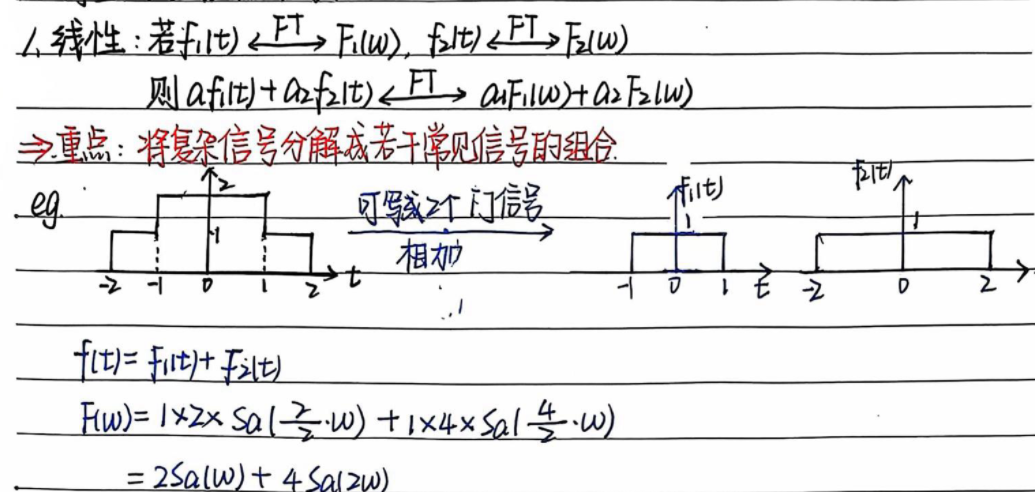 1、线性：若f₁(t) ←FT→ F₁(ω)，f₂(t) ←FT→ F₂(ω)
则 af₁(t)+a₂f₂(t) ←FT→ a₁F₁(ω)+a₂F₂(ω)
⇒重点：将复杂信号分解成若干常见信号的组合.
eg. 2 1 -2 -1 0 1 2 t
可写成2个门信号
相加
f₁(t) 1 -1 0 1 t
f₂(t) 1 -2 0 2
f(t)= f₁(t)+ f₂(t)
F(ω)= 1×2× Sa(2/2·ω) + 1×4×Sa(4/2·ω)
= 2Sa(ω)+ 4Sa(2ω)